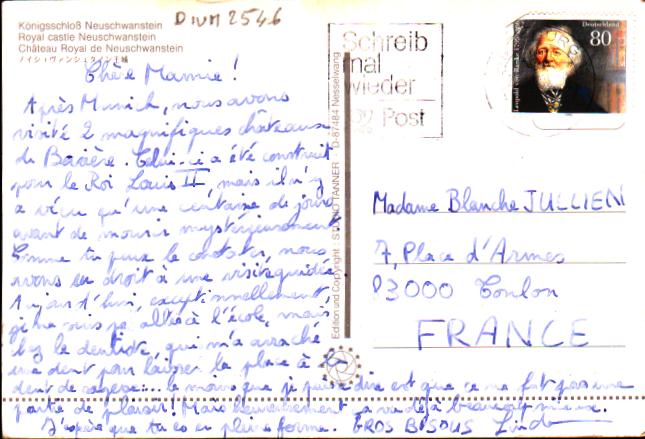 Königsschloß Neuschwanstein
Royal castle Neuschwanstein
Château Royal de Neuschwanstein
ノイシュヴァンシュタイン王城
DIVM 2546
Chère Mamie !
Après Munich, nous avons
visité 2 magnifiques châteaux
de Bavière. Celui-ci a été construit
pour le Roi Louis II, mais il n'y
a vécu qu'une centaine de jours
avant de mourir mystérieusement
Comme tu peux le constater, nous
avons eu droit à une visite guidée
Aujourd'hui, exceptionnellement
je ne suis pas allée à l'école, mais
chez le dentiste, qui m'a arraché
une dent pour laisser la place à la
dent de sagesse... le moins que je puisse dire est que ce ne fut pas une
partie de plaisir! Mais heureusement ça va déjà beaucoup mieux.
J'espère que tu es en pleine forme. GROS BISOUS
Edition und Copyright STUDIO TANNER D-87484 Nesselwang
Schreib
mal
wieder
Post
Deutschland
80
Leopold von Ranke
Madame Blanche JULLIEN
7, Place d'Armes
83000 Toulon
FRANCE